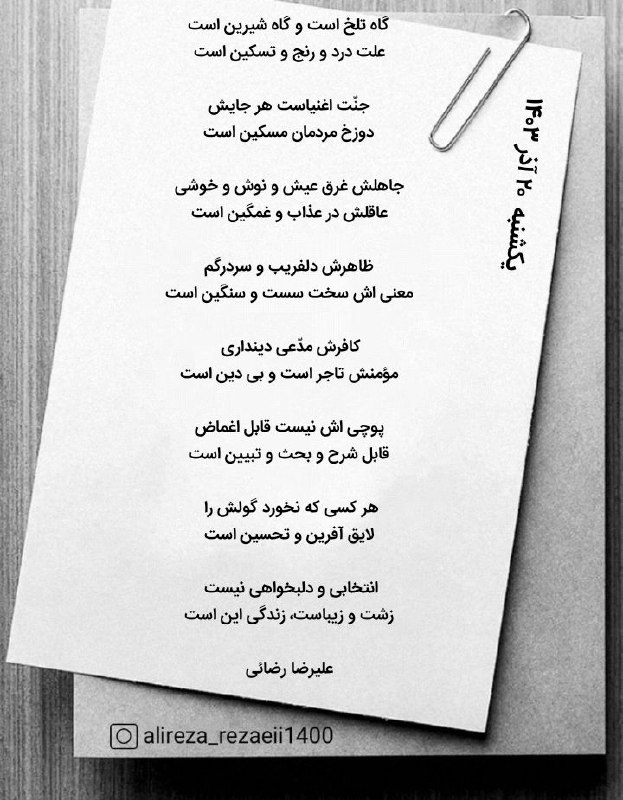 گاه تلخ است و گاه شیرین است
علت درد و رنج و تسکین است
جنّت اغنیاست هر جایش
دوزخ مردمان مسکین است
جاهلش غرق عیش و نوش و خوشی
عاقلش در عذاب و غمگین است
ظاهرش دلفریب و سردرگم
معنی اش سخت سست و سنگین است
کافرش مدّعی دینداری
مؤمنش تاجر است و بی دین است
پوچی اش نیست قابل اغماض
قابل شرح و بحث و تبیین است
هر کسی که نخورد گولش را
لایق آفرین و تحسین است
انتخابی و دلبخواهی نیست
زشت و زیباست، زندگی این است
علیرضا رضائی
یکشنبه ۲۰ آذر ۱۴۰۳
alireza_rezaeii1400